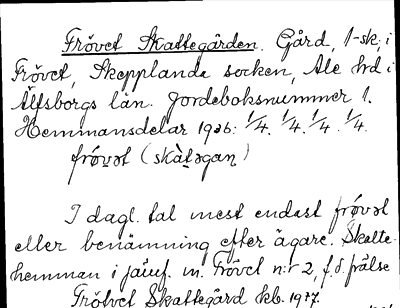 Frövet Skattegården. Gård, 1 sk, i
Frövet, Skepplanda socken, Ale hrd i
Älfsborgs län. Jordeboksnummer 1.
Hemmansdelar 1926: 1/4. 1/4. 1/4. 1/4.
frö́vət (skàtəgan)
I dagl. tal mest endast frö́vət
eller benämning efter ägare. Skatte-
hemman i jämf. m. Frövet n:r 2, f.d. frälse
Frötvet Skattegård kb. 1927.